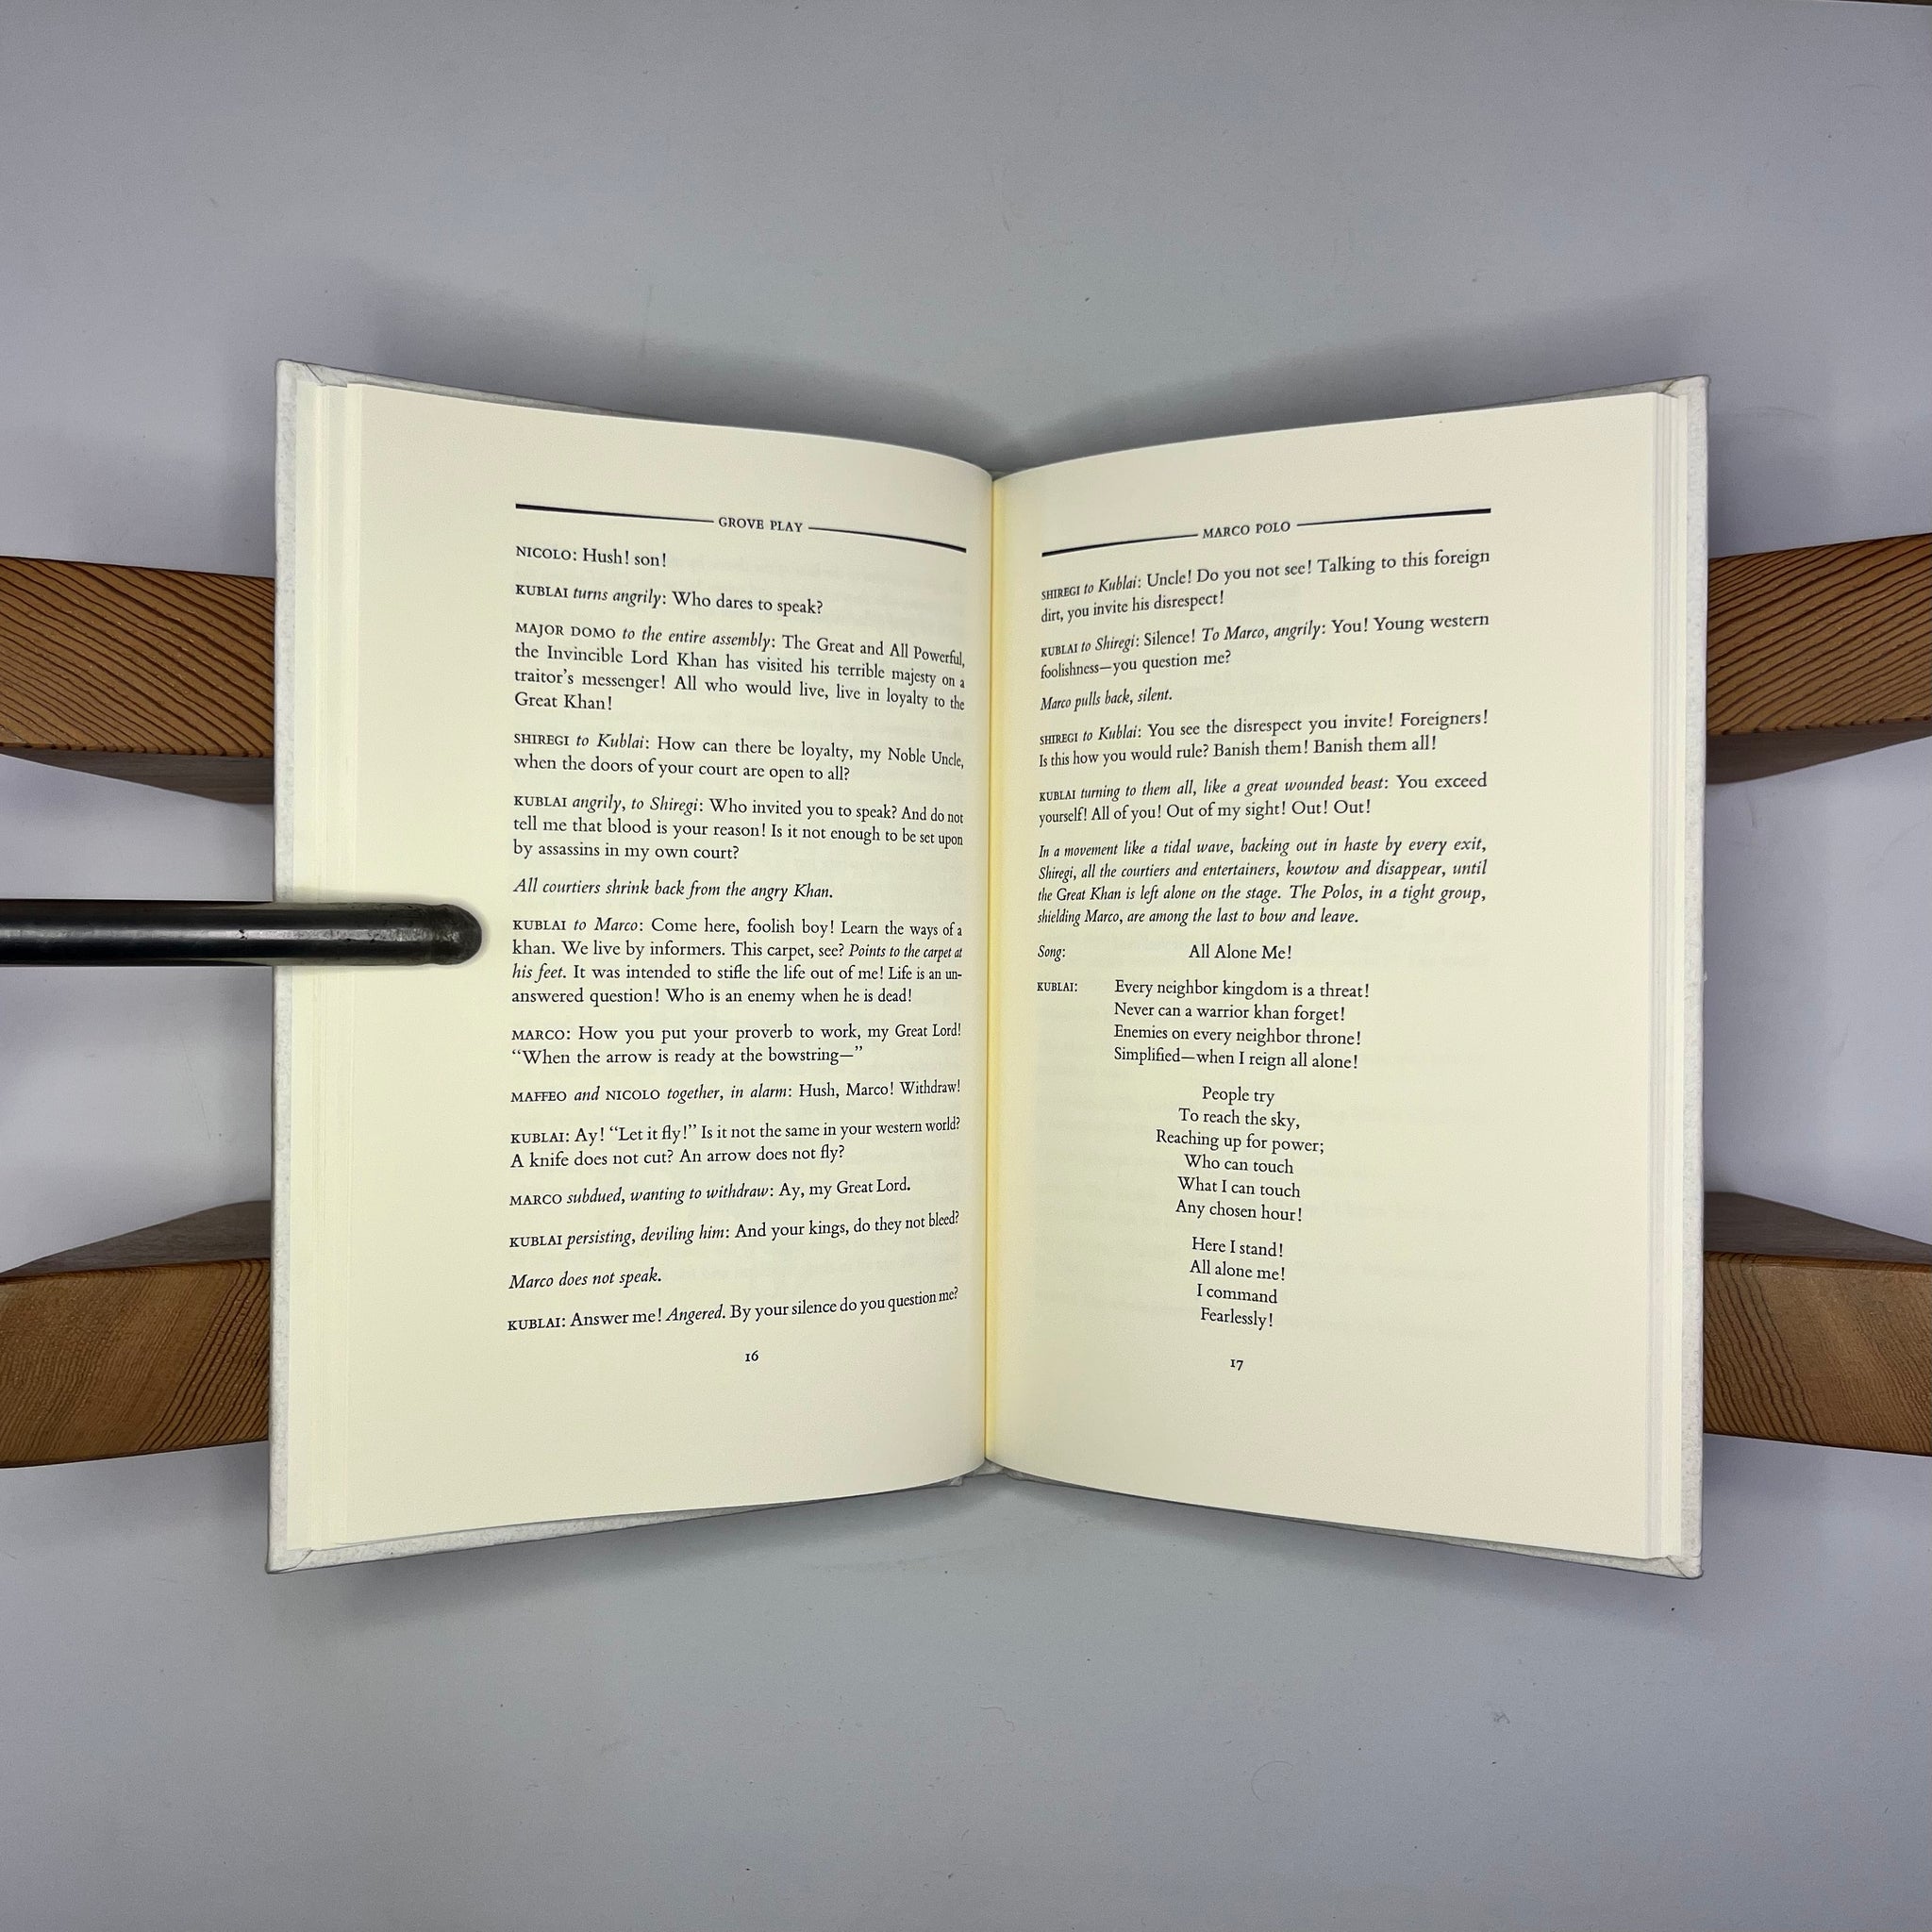 GROVE PLAY
NICOLO: Hush! son!
KUBLAI turns angrily: Who dares to speak?
MAJOR DOMO to the entire assembly: The Great and All Powerful,
the Invincible Lord Khan has visited his terrible majesty on a
traitor's messenger! All who would live, live in loyalty to the
Great Khan!
SHIREGI to Kublai: How can there be loyalty, my Noble Uncle,
when the doors of your court are open to all?
KUBLAI angrily, to Shiregi: Who invited you to speak? And do not
tell me that blood is your reason! Is it not enough to be set upon
by assassins in my own court?
All courtiers shrink back from the angry Khan.
KUBLAI to Marco: Come here, foolish boy! Learn the ways of a
khan. We live by informers. This carpet, see? Points to the carpet at
his feet. It was intended to stifle the life out of me! Life is an un-
answered question! Who is an enemy when he is dead!
MARCO: How you put your proverb to work, my Great Lord!
“When the arrow is ready at the bowstring—”
MAFFEO and NICOLO together, in alarm: Hush, Marco! Withdraw!
KUBLAI: Ay! “Let it fly!” Is it not the same in your western world?
A knife does not cut? An arrow does not fly?
MARCO subdued, wanting to withdraw: Ay, my Great Lord.
KUBLAI persisting, deviling him: And your kings, do they not bleed?
Marco does not speak.
KUBLAI: Answer me! Angered. By your silence do you question me?
16
MARCO POLO
SHIREGI to Kublai: Uncle! Do you not see! Talking to this foreign
dirt, you invite his disrespect!
KUBLAI to Shiregi: Silence! To Marco, angrily: You! Young western
foolishness—you question me?
Marco pulls back, silent.
SHIREGI to Kublai: You see the disrespect you invite! Foreigners!
Is this how you would rule? Banish them! Banish them all!
KUBLAI turning to them all, like a great wounded beast: You exceed
yourself! All of you! Out of my sight! Out! Out!
In a movement like a tidal wave, backing out in haste by every exit,
Shiregi, all the courtiers and entertainers, kowtow and disappear, until
the Great Khan is left alone on the stage. The Polos, in a tight group,
shielding Marco, are among the last to bow and leave.
Song: All Alone Me!
KUBLAI: Every neighbor kingdom is a threat!
Never can a warrior khan forget!
Enemies on every neighbor throne!
Simplified—when I reign all alone!
People try
To reach the sky,
Reaching up for power;
Who can touch
What I can touch
Any chosen hour!
Here I stand!
All alone me!
I command
Fearlessly!
17